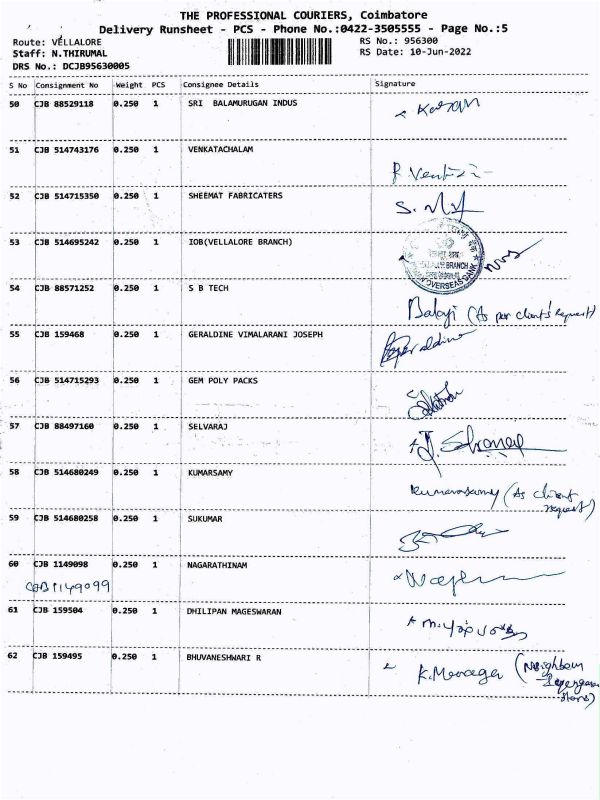 THE PROFESSIONAL COURIERS, Coimbatore
Delivery Runsheet - PCS - Phone No.:0422-3505555 - Page No.:5
Route: VELLALORE RS No.: 956300
Staff: N.THIRUMAL RS Date: 10-Jun-2022
DRS No.: DCJB95630005
S No Consignment No Weight PCS Consignee Details Signature
50 CJB 88529118 0.250 1 SRI BALAMURUGAN INDUS
51 CJB 514743176 0.250 1 VENKATACHALAM
52 CJB 514715350 0.250 1 SHEEMAT FABRICATERS
53 CJB 514695242 0.250 1 IOB(VELLALORE BRANCH)
BRANCH
OVERSEAS BANK
54 CJB 88571252 0.250 1 S B TECH
Balaji (As per client's Request)
55 CJB 159468 0.250 1 GERALDINE VIMALARANI JOSEPH
Geraldine
56 CJB 514715293 0.250 1 GEM POLY PACKS
57 CJB 88497160 0.250 1 SELVARAJ
58 CJB 514680249 0.250 1 KUMARSAMY
Kumarasamy (As client
request)
59 CJB 514680258 0.250 1 SUKUMAR
60 CJB 1149098 0.250 1 NAGARATHINAM
CJB1149099
61 CJB 159504 0.250 1 DHILIPAN MAGESWARAN
62 CJB 159495 0.250 1 BHUVANESHWARI R
(Neighbour